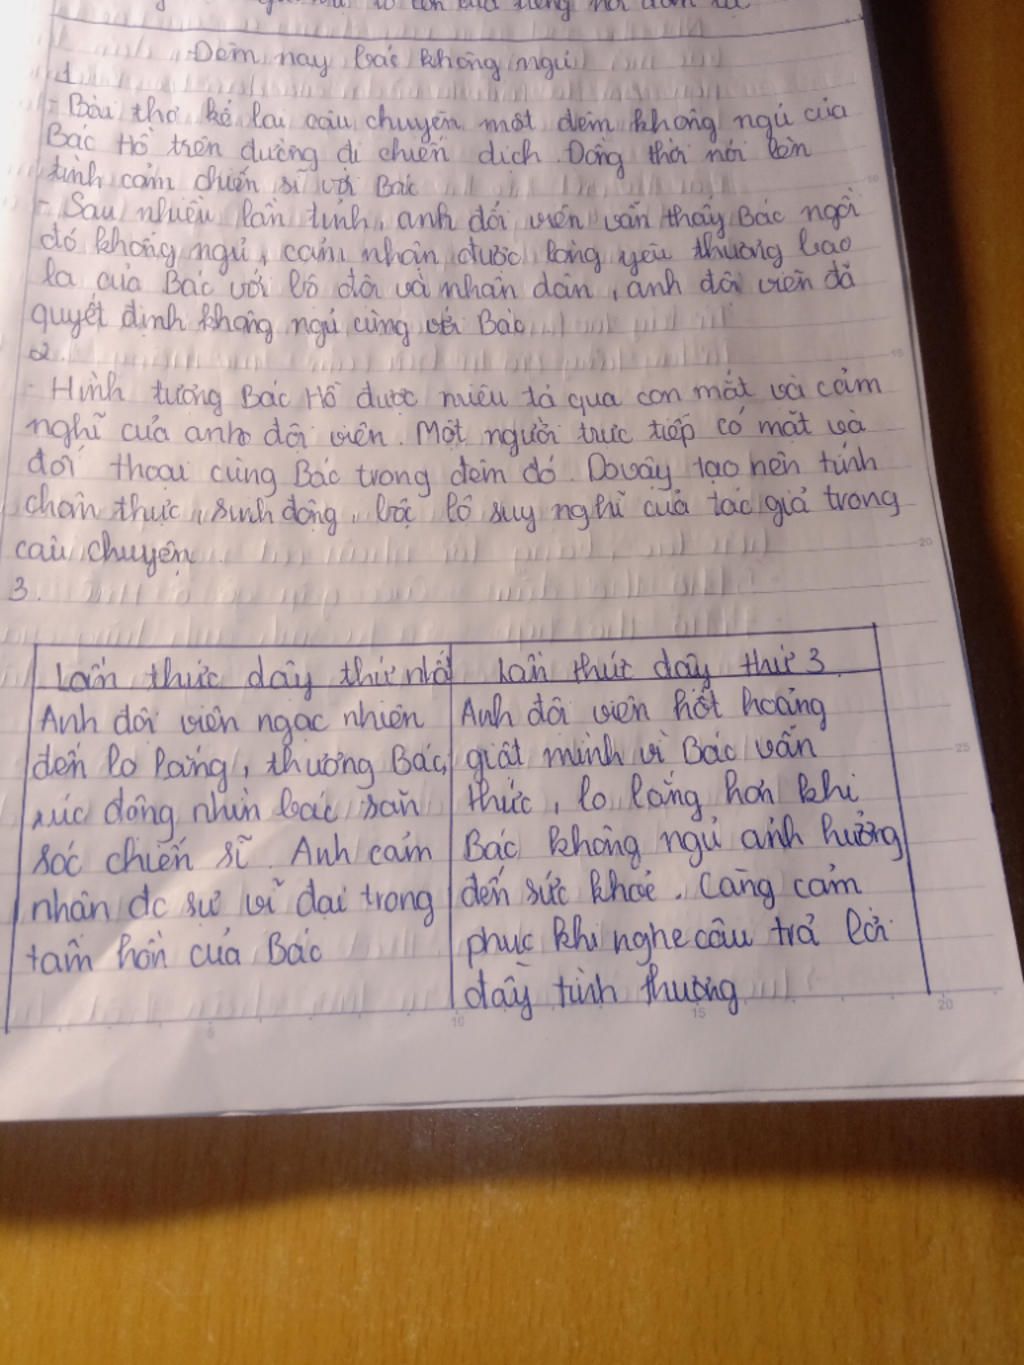 Đêm nay bác không ngủ
1
- Bài thơ kể lại câu chuyện một đêm không ngủ của
Bác Hồ trên đường đi chiến dịch. Đồng thời nói lên
tình cảm chiến sĩ với Bác
- Sau nhiều lần tỉnh, anh đội viên vẫn thấy Bác ngồi
đó không ngủ, cảm nhận được lòng yêu thương bao
la của Bác với bộ đội và nhân dân, anh đội viên đã
quyết định không ngủ cùng với Bác
2.
- Hình tượng Bác Hồ được miêu tả qua con mắt và cảm
nghĩ của anh đội viên. Một người trực tiếp có mặt và
đối thoại cùng Bác trong đêm đó. Do vậy tạo nên tính
chân thực, sinh động, bộc lộ suy nghĩ của tác giả trong
câu chuyện
3.
Lần thức dậy thứ nhất
Lần thức dậy thứ 3
Anh đội viên ngạc nhiên
đến lo lắng, thương Bác,
xúc động nhìn bác săn
sóc chiến sĩ. Anh cảm
nhận đc sự vĩ đại trong
tâm hồn của Bác
Anh đội viên hốt hoảng
giật mình vì Bác vẫn
thức, lo lắng hơn khi
Bác không ngủ ảnh hưởng
đến sức khoẻ. Càng cảm
phục khi nghe câu trả lời
đầy tình thương